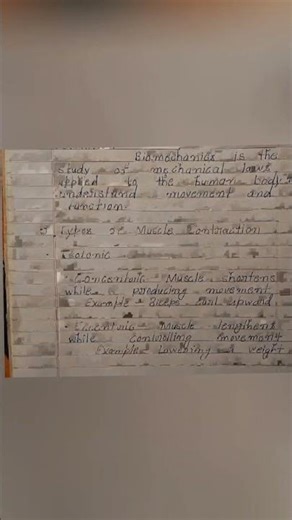 Biomechanics is the
study of mechanical laws
applied to the human body
understand movement and
function
Types of Muscle Contraction
Isotonic
Concentric - Muscle shortens
while producing movement
Example - Biceps curl upward
Eccentric - Muscle lengthens
while controlling movement
Example Lowering a weight